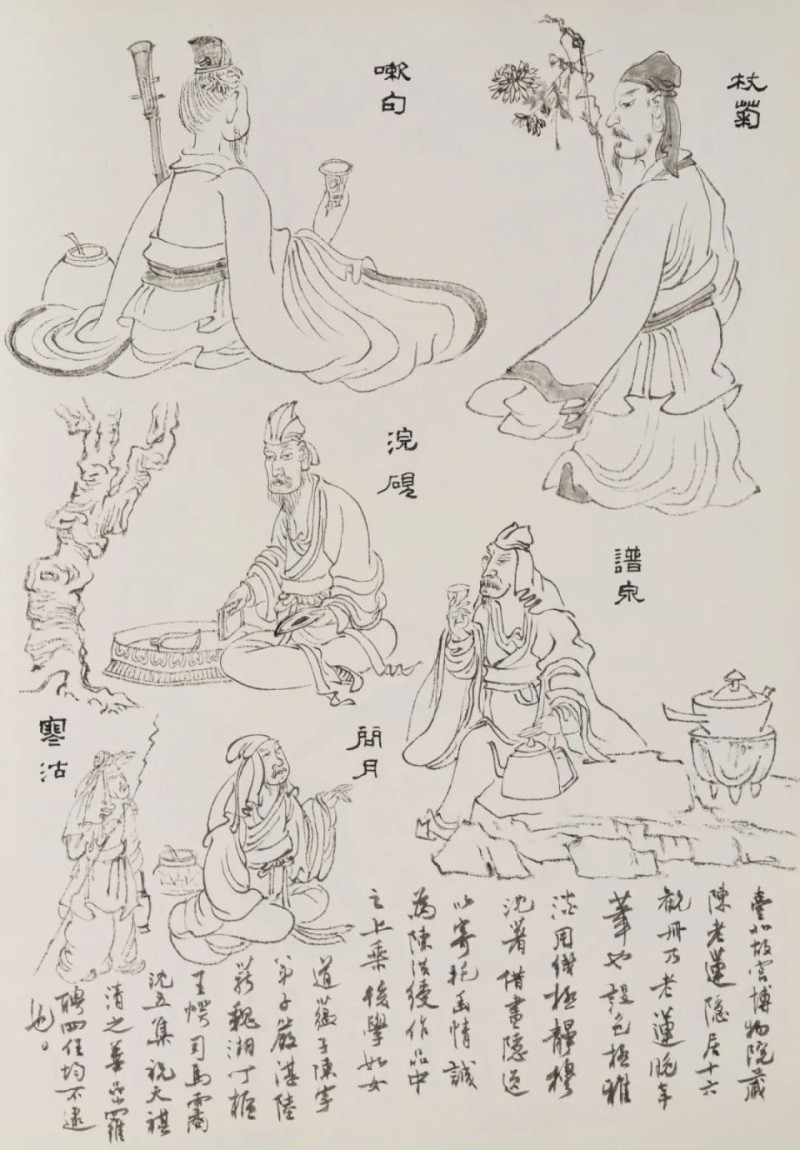 杖菊
嗽句
浣硯
譜泉
問月
寒沽
臺北故宮博物院藏
陳老蓮隱居十六
觀冊乃老蓮晚年
筆也設色極雅
洁用线極靜穆
沈著借畫隱逸
以寄托幽情誠
為陳洪绶作品中
之上乘後學如女
道蕴子陳字
弟子嚴湛陸
薪魏湘丁樞
王愕司馬霱
沈五集祝天祺
清之華喦羅
聘四任均不逮
也。